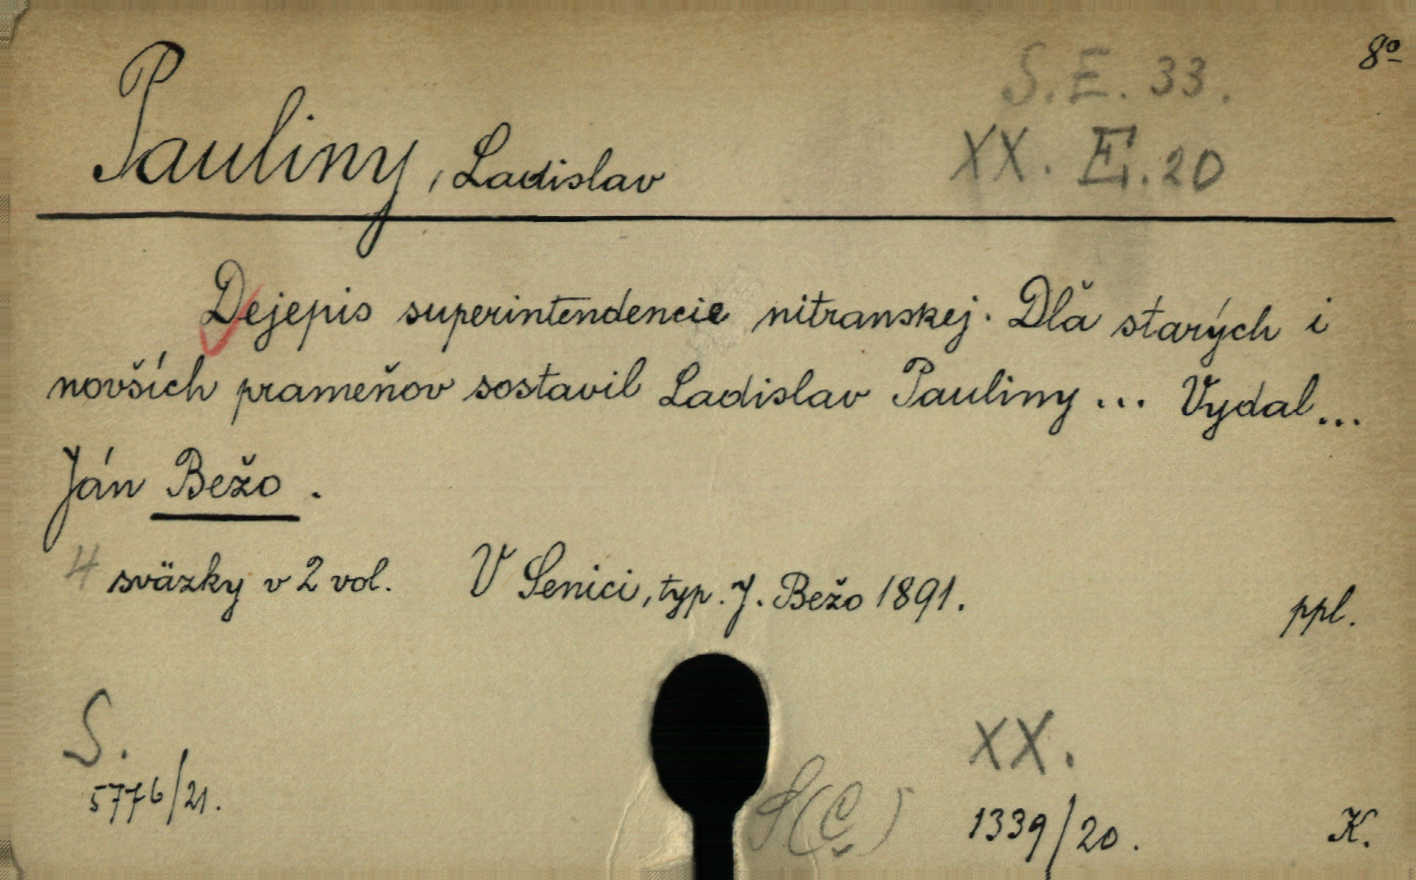 8º
S.E. 33.
Pauliny, Ladislav
XX. E. 20
Dejepis superintendencie nitranskej. Dľa starých i
novších prameňov sostavil Ladislav Pauliny... Vydal...
Ján Bežo.
4 sväzky v 2 vol. V Senici, typ. J. Bežo 1891.
ppl.
S. XX.
5776/21. S(C) 1339/20. K.